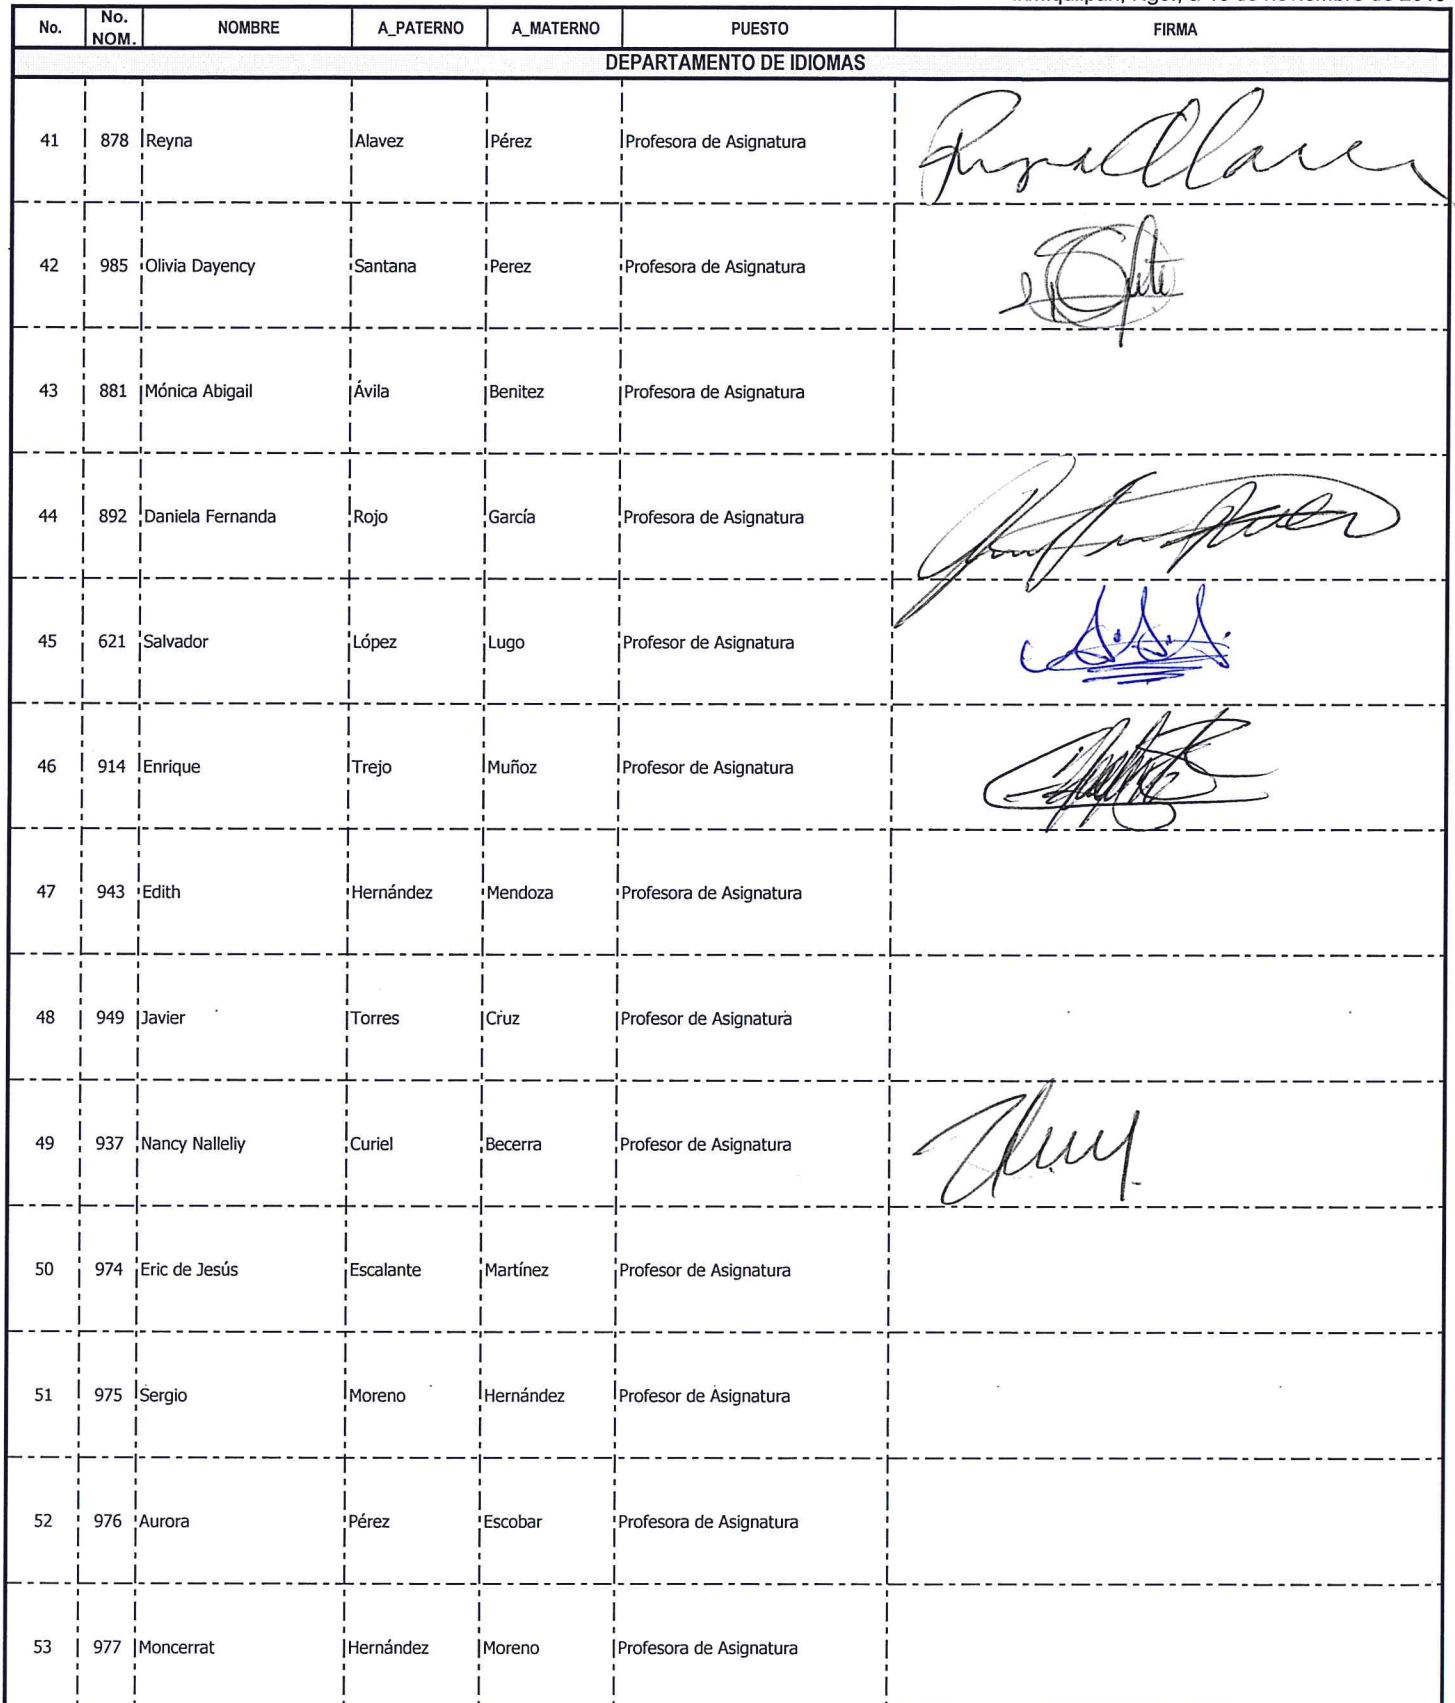 No. No. NOM. NOMBRE A_PATERNO A_MATERNO PUESTO FIRMA
DEPARTAMENTO DE IDIOMAS
41 878 Reyna Alavez Pérez Profesora de Asignatura
42 985 Olivia Dayency Santana Perez Profesora de Asignatura
43 881 Mónica Abigail Ávila Benitez Profesora de Asignatura
44 892 Daniela Fernanda Rojo García Profesora de Asignatura
45 621 Salvador López Lugo Profesor de Asignatura
46 914 Enrique Trejo Muñoz Profesor de Asignatura
47 943 Edith Hernández Mendoza Profesora de Asignatura
48 949 Javier Torres Cruz Profesor de Asignatura
49 937 Nancy Nalleliy Curiel Becerra Profesor de Asignatura
50 974 Eric de Jesús Escalante Martínez Profesor de Asignatura
51 975 Sergio Moreno Hernández Profesor de Asignatura
52 976 Aurora Pérez Escobar Profesora de Asignatura
53 977 Moncerrat Hernández Moreno Profesora de Asignatura